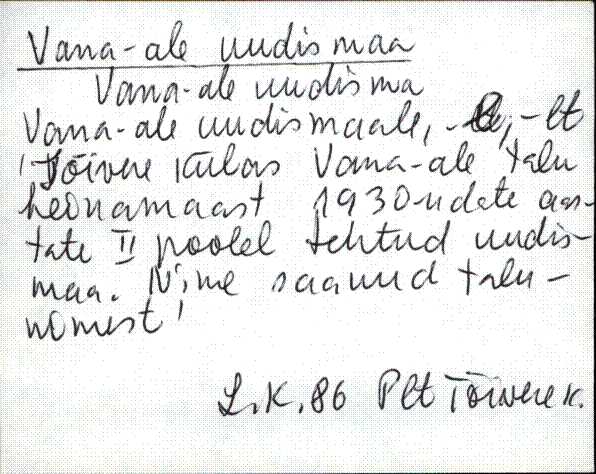 Vana-ale uudismaa
Vana-ale uudisma
Vana-ale uudismaale, -le, -lt
'Tõivere külas Vana-ale talu
heinamaast 1930-ndate aas-
tate II poolel tehtud uudis-
maa. Nime saanud talu-
nimest'
L.K. 86 Plt Tõivere k.